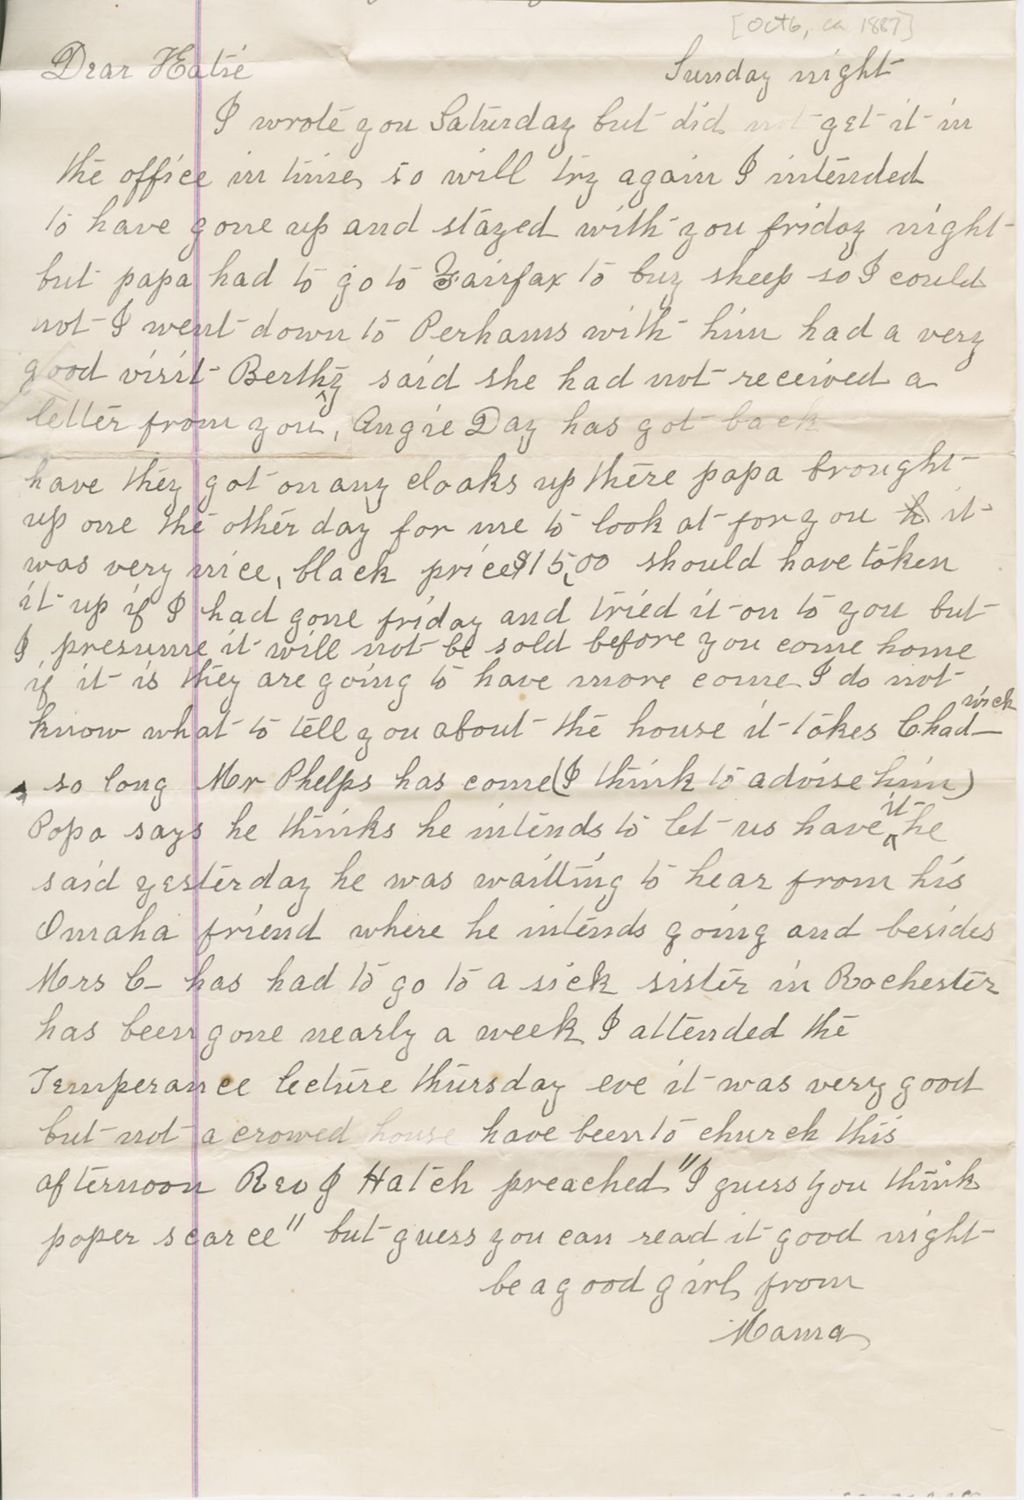 [Oct 6, ca 1887]
Dear Hatie Sunday night
I wrote you Saturday but did not get it in
the office in time, so will try again I intended
to have gone up and stayed with you friday night
but papa had to go to Fairfax to buy sheep so I could
not I went down to Perhams with him had a very
good visit Berthy said she had not received a
letter from you, Angie Day has got back
have they got on any cloaks up there papa brought
up one the other day for me to look at for you it
was very nice, black price $15,00 should have taken
it up if I had gone friday and tried it on to you but
I presume it will not be sold before you come home
if it is they are going to have more come I do not
know what to tell you about the house it takes Chadwick
so long Mr Phelps has come (I think to advise him)
Papa says he thinks he intends to let us have it he
said yesterday he was waitting to hear from his
Omaha friend where he intends going and besides
Mrs C- has had to go to a sick sister in Rochester
has been gone nearly a week I attended the
Temperance lecture thursday eve it was very good
but not a crowed house have been to church this
afternoon Rev J Hatch preached "I guess you think
paper scarce" but guess you can read it good night
be a good girl, from
Mama